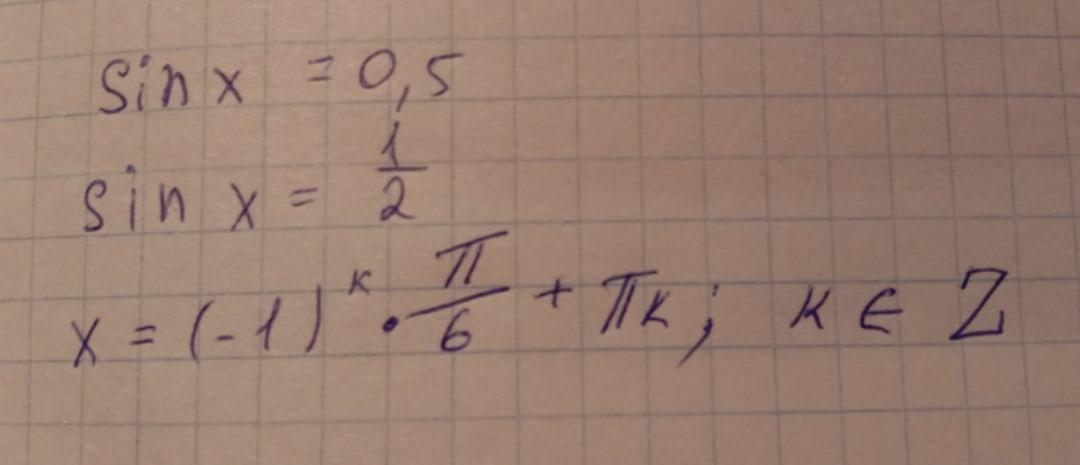 sin x = 0,5
sin x = 1/2
x = (-1)^к · π/6 + πк; к ∈ Z